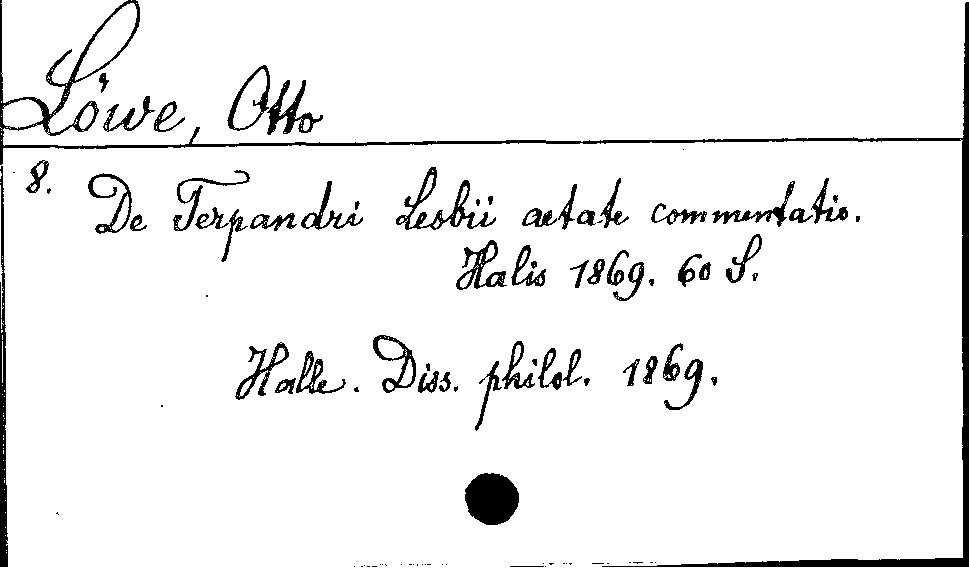 Löwe, Otto
8. De Terpandri Lesbii aetate commentatio.
Halis 1869. 60 S.
Halle. Diss. philol. 1869.